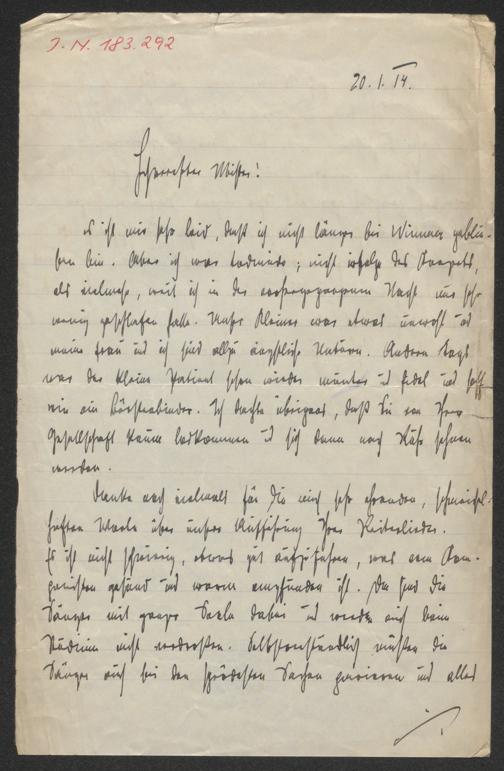 J.N. 183.292
20. I. 14.
Sehr verehrter Meister!
es ist mir sehr leid, daß ich nicht länger bei Winner geblie-
ben bin. Aber ich war todmüde; nicht infolge des Konzerts,
als vielmehr, weil ich in der vorhergegangenen Nacht nur sehr
wenig geschlafen hatte. Unser Kleiner war etwas unwohl und
meine Frau und ich sind allzu ängstliche Naturen. Andern Tags
war der kleine Patient schon wieder munter und fidel und
wie ein Bürstenbinder. Ich dachte übrigens, daß Sie von Ihrer
Gesellschaft kaum loskommen und sich dann nach Ruhe sehnen
werden.
Danke noch vielmals für die mich sehr ehrenden, schmeichel-
haften Worte über unsere Aufführung Ihres Reiterliedes.
Es ist nicht schwierig, etwas gut aufzuführen, was vom Kom-
ponisten gesund und warm empfunden ist. Da sind die
Sänger mit ganzer Seele dabei und werden auch beim
Studium nicht verdrossen. Selbstverständlich müssen die
Sänger auch bei den sprödesten Sachen parieren und alles